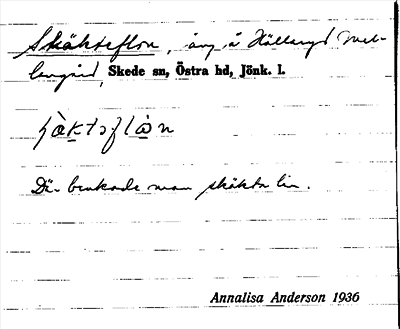 Skäktseflon, äng å Hällaryd Mel-
langård, Skede sn, Östra hd, Jönk. l.
Där brukade man skäkta lin.
Annalisa Anderson 1936